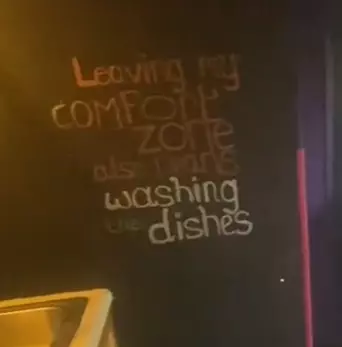 Leaving my
COMFORT
ZONE
also means
washing
the dishes